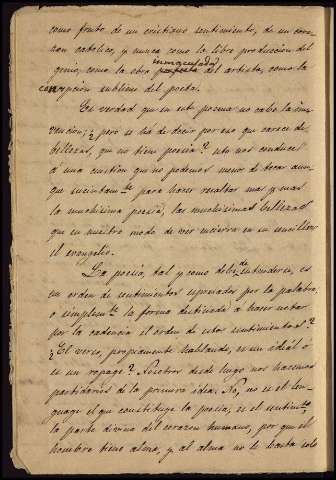 como fruto de un cristiano sentimiento, de un cora-
zon catolico, y nunca como la libre produccion del
genio, como la obra inmaculada perfecta del artista, como la
concepcion sublime del poeta.
Es verdad que en este poema no cabe la in-
vencion; ¿pero se ha de decir por eso que carece de
bellezas, que no tiene poesia? esto nos conduce
a una cuestion que no podemos menos de tocar aun-
que sucintamte para hacer resaltar mas y mas
la muchisima poesia, las muchisimas bellezas
que en nuestro modo de ver encierra en su sencillez
el evangelio.
La poesia, tal y como debe entenderse, es
un orden de sentimientos espresados por la palabra,
o simplemte la forma destinada a hacer notar
por la cadencia el orden de estos sentimientos?
¿El verso, propiamente hablando, es un ideal ó
es un ropage? Nosotros desde luego nos hacemos
partidarios de la primera idea. No, no es el len-
guage el que constituye la poesia, es el sentimto,
la parte divina del corazon humano, por que el
hombre tiene alma, y al alma no le basta solo